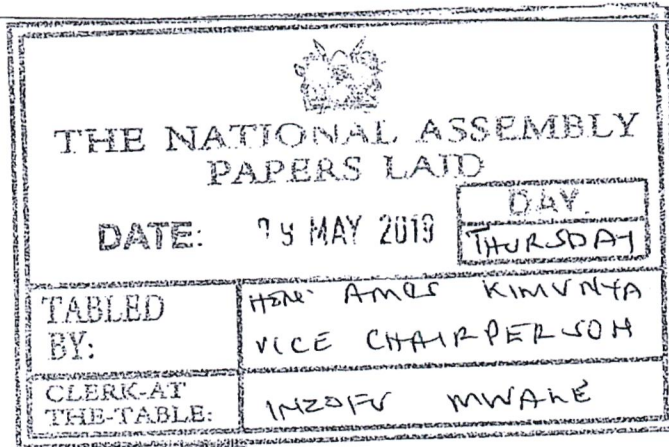 THE NATIONAL ASSEMBLY
PAPERS LAID
DATE: 09 MAY 2019
DAY.
THURSDAY
TABLED
BY:
HON. AMOS KIMUNYA
VICE CHAIRPERSON
CLERK-AT
THE-TABLE:
INZOFU MWALE